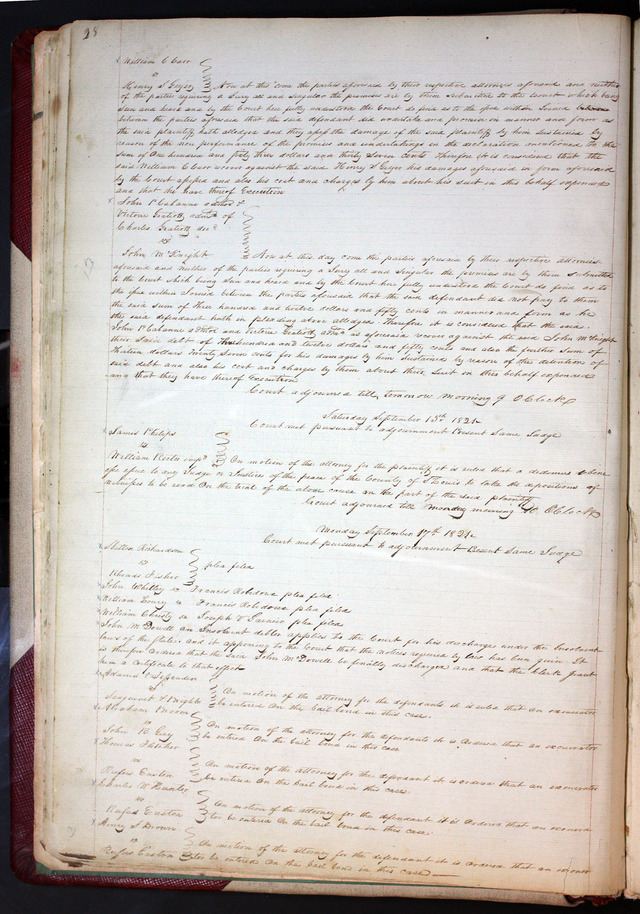 28
William C Carr
vs
Henry S Geyer Now at this come the parties aforesaid by their respective attornies aforesaid and neither
of the parties requiring a Jury all and singular the premises are by them submitted to the Court which being
seen and heard and by the Court here fully understood the Court do find as to the
between the parties aforesaid that the said defendant did undertake and promise in manner and form as
the said plaintiff hath alledged and they assess the damage of the said plaintiff by him sustained by
reason of the non performance of the promises and undertakings in the declaration mentioned to the
sum of One hundred and forty three dollars and thirty seven cents Therefore it is considered that the
said William C Carr recover against the said Henry S Geyer his damages aforesaid in form aforesaid
by the Court assessed and also his cost and charges by him about his suit in this behalf expended
and that he have thereof Execution
John P Cabanne &
Victoire Gratiott of
Charles Gratiott
vs
John McKnight Now at this day come the parties aforesaid by their respective attornies
aforesaid and neither of the parties requiring a Jury all and singular the premises are by them submitted
to the Court which being seen and heard and by the Court here fully understood the Court do find as to
the issue within Joined between the parties aforesaid that the said defendant did not pay to them
the said sum of three hundred and twelve dollars and fifty cents in manner and form as he
the said defendant hath in pleading above alledged Therefore it is considered that the said
John P Cabanne and Victoire Gratiott as aforesaid recover against the said John McKnight
their said debt of three hundred and twelve dollars and fifty cents and also the further sum of
thirteen dollars twenty seven cents for his damages by them sustained by reason of the detention of
said debt and also his cost and charges by them about their suit in this behalf expended
and that they have thereof Execution
Court adjourned till tomorrow morning 9 OClock
Saturday September 1821
Court met pursuant to adjournment Present Same Judge
James Philips
vs
William Rector On motion of the attorney for the plaintiff it is ruled that a dedimus
to any Judge or Justice of the peace of the County of St Louis to take the depositions of
witnesses to be read On the trial of the above cause on the part of the said plaintiff
Court adjourned till Monday morning OClock
Monday September 17th 1821
Court met pursuant to adjournment Present Same Judge
Richardson
vs plea filed
Fisher
John Whitley vs Francis Robidoux plea filed
William vs Francis Robidoux plea filed
William Christy vs Joseph plea filed
John McDowell an Insolvent debtor applies to the Court for his discharge under the Insolvent
laws of the State and it appearing to the Court that the notices required by law has been given It
is therefore Ordered that the said John McDowell be finally discharged and that the clerk grant
him a Certificate to that effect
Adams
vs On motion of the attorney for the defendants it is ruled that an exonerator
Knight be entered On the bail bond in this case
Abraham
vs On motion of the attorney for the defendants it is Ordered that an exonerator
John K be entered On the bail bond in this case
Thomas Fletcher
vs On motion of the attorney for the defendant it is ordered that an exonerator
Rufus Easton be entered On the bail bond in this case
Charles W Hunter
vs On motion of the attorney for the defendant it is Ordered that an
Rufus Easton be entered On the bail bond in this case
Henry S Brown
vs On motion of the attorney for the defendant it is ordered that an
Rufus Easton be entered On the bail bond in this case